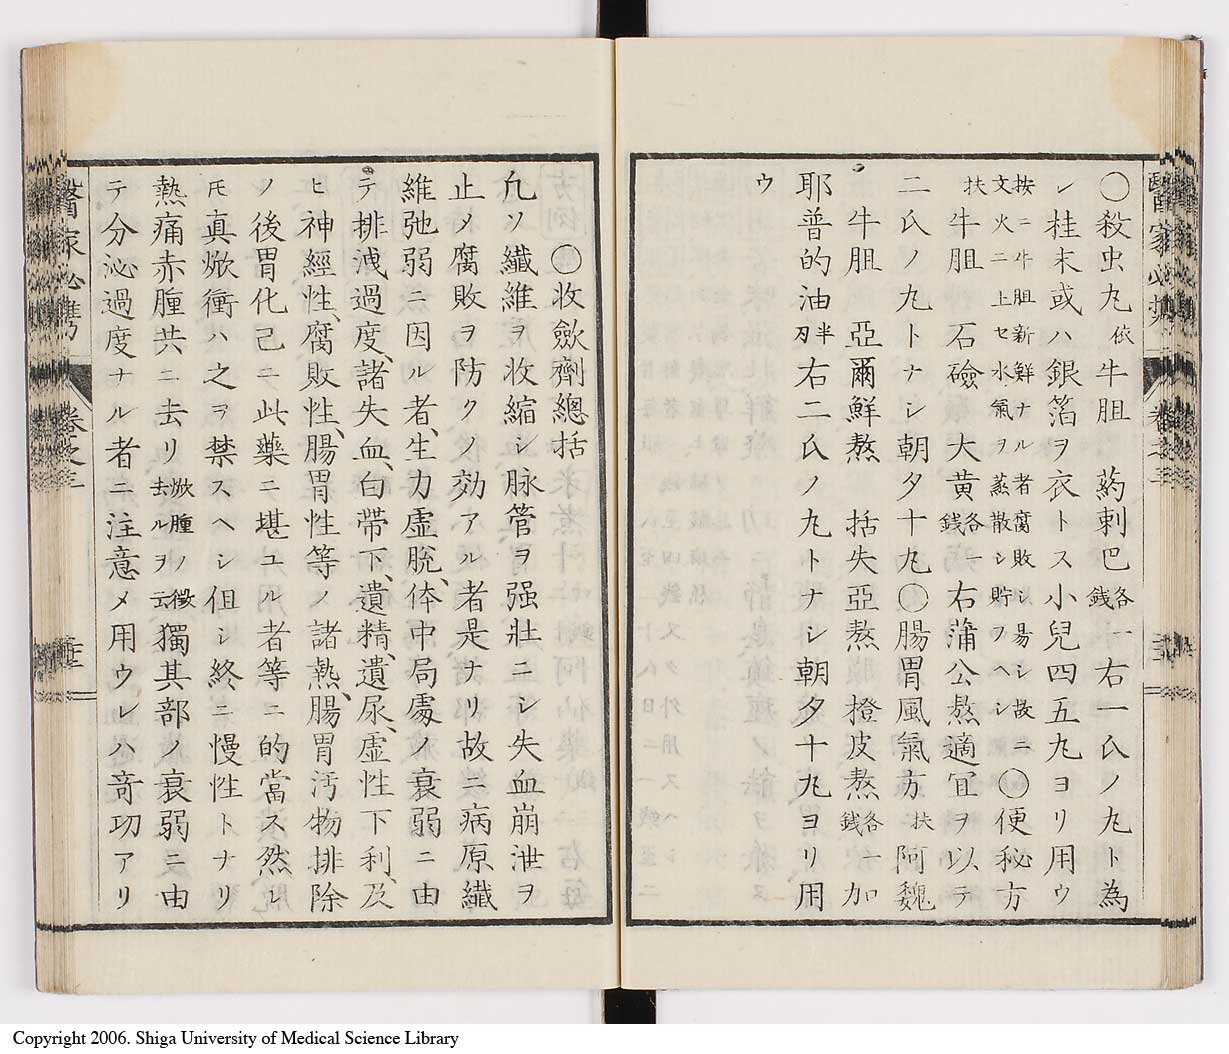 〇殺虫丸 依 牛胆 葯剌巴 各一銭 右一氏ノ丸ト為
シ桂末或ハ銀箔ヲ衣トス小兒四五丸ヨリ用ウ
按ニ牛胆新鮮ナル者腐敗シ易シ故ニ文火ニ上セ水氣ヲ蒸散シ貯ヲヘシ 〇便秘方
扶 牛胆 石礆 大黄 各一銭 右蒲公熬適冝ヲ以テ
二氏ノ丸トナシ朝夕十丸〇腸胃風氣方 扶 阿魏
牛胆 亞爾鮮熬 括失亞熬 橙皮熬 各一銭 加
耶普的油 半刄 右二氏ノ丸トナシ朝夕十丸ヨリ用
ウ
〇收歛劑總括
凢ソ纖維ヲ收縮シ脉管ヲ强壯ニシ失血崩泄ヲ
止メ腐敗ヲ防クノ効アル者是ナリ故ニ病原纖
維弛弱ニ因ル者、生力虚脱、体中局處ノ衰弱ニ由
テ排洩過度、諸失血、白帶下、遺精、遺尿、虚性下利、及
ヒ神經性、腐敗性、腸胃性等ノ諸熱、腸胃汚物排除
ノ後胃化己ニ此藥ニ堪ユル者等ニ的當ス然レ
モ真焮衝ハ之ヲ禁スヘシ但シ終ニ慢性トナリ
熱痛赤腫共ニ去リ 焮腫ノ徴去ルヲ云 獨其部ノ衰弱ニ由
テ分泌過度ナル者ニ注意メ用ウレハ竒功アリ
醫家必携
卷之三
Copyright 2006. Shiga University of Medical Science Library